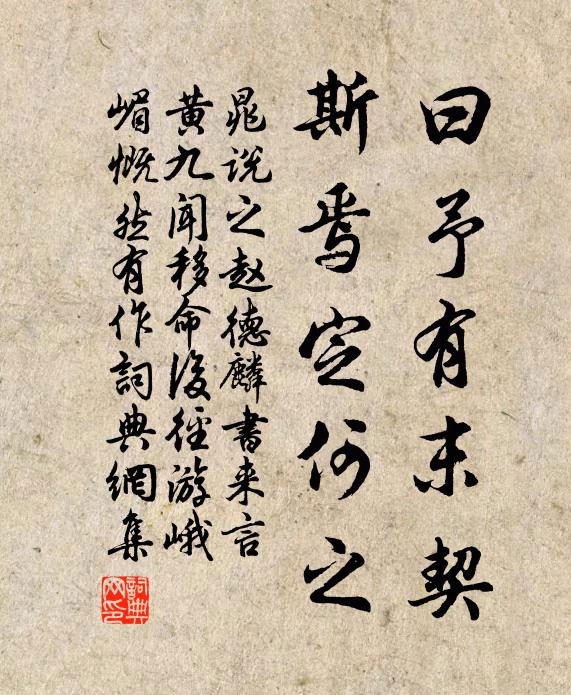 曰予有末契
斯焉定何之
晁説之赵德麟書来言
黄九聞移命後径游峨
嵋慨然有作詞典網集
詞典
网印